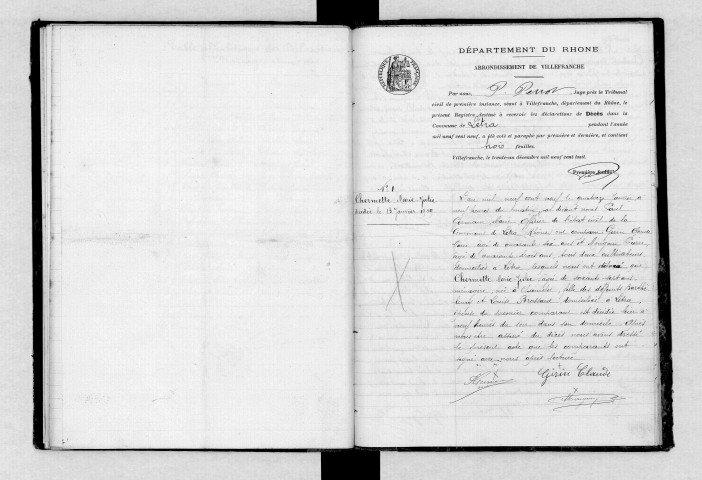 DÉPARTEMENT DU RHONE
ARRONDISSEMENT DE VILLEFRANCHE
Par nous, P. Perrot, Juge près le Tribunal
civil de première instance, séant à Villefranche, département du Rhône, le
présent Registre destiné à recevoir les déclarations de Décès dans la
Commune de Létra pendant l'année
mil neuf cent neuf, a été coté et paraphé par première et dernière, et contient
trois feuilles.
Villefranche, le trente-un décembre mil neuf cent huit.
Première feuille
N° 1
Chermette Marie-Julie
décédée le 13 Janvier 1909
L'an mil neuf cent neuf le quatorze Janvier à
neuf heures du matin, par devant nous Paul
Germain Maire Officier de l'état civil de la
Commune de Létra, Rhône, ont comparu Girin Claude
âgé de quarante six ans et Pierre,
âgé de quarante trois ans, tous deux cultivateurs,
domiciliés à Létra, lesquels nous ont déclaré que
Chermette Marie-Julie âgée de soixante sept ans,
ménagère, née à Chamelet, fille des défunts
et Louise Brossard domiciliée à Létra,
du premier comparant est décédée hier à
neuf heures du soir dans son domicile. Après
nous être assuré du décès nous avons dressé
le présent acte que les comparants ont
signé avec nous après lecture.
Girin Claude